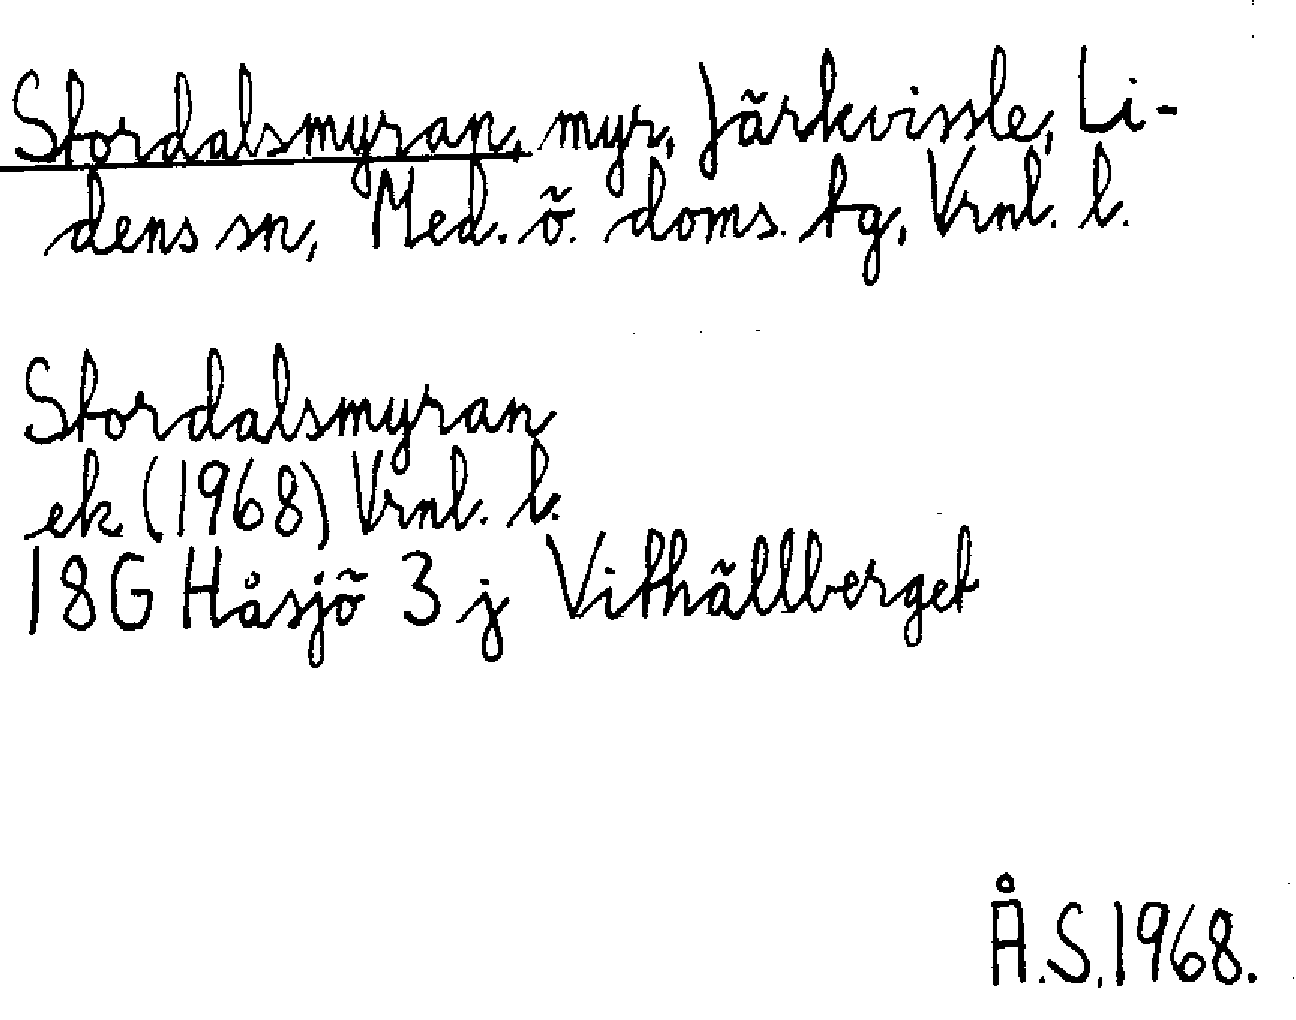 Stordalsmyran, myr, Järkvissle, Li-
dens sn, Med. ö. doms. tg, Vrnl. l.
Stordalsmyran
ek (1968) Vrnl. l.
18G Håsjö 3 j Vithällberget
Å.S. 1968.